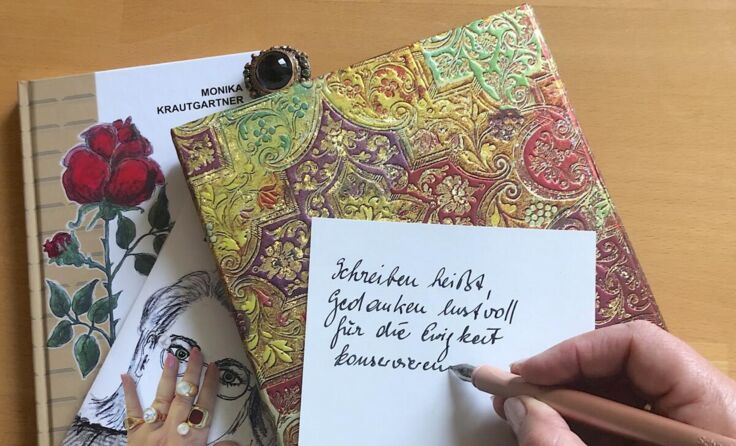 MONIKA
KRAUTGARTNER
Schreiben heißt,
Gedanken lustvoll
für die Ewigkeit
konservieren